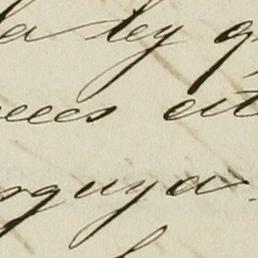 la ley q
eces cit
rguya.